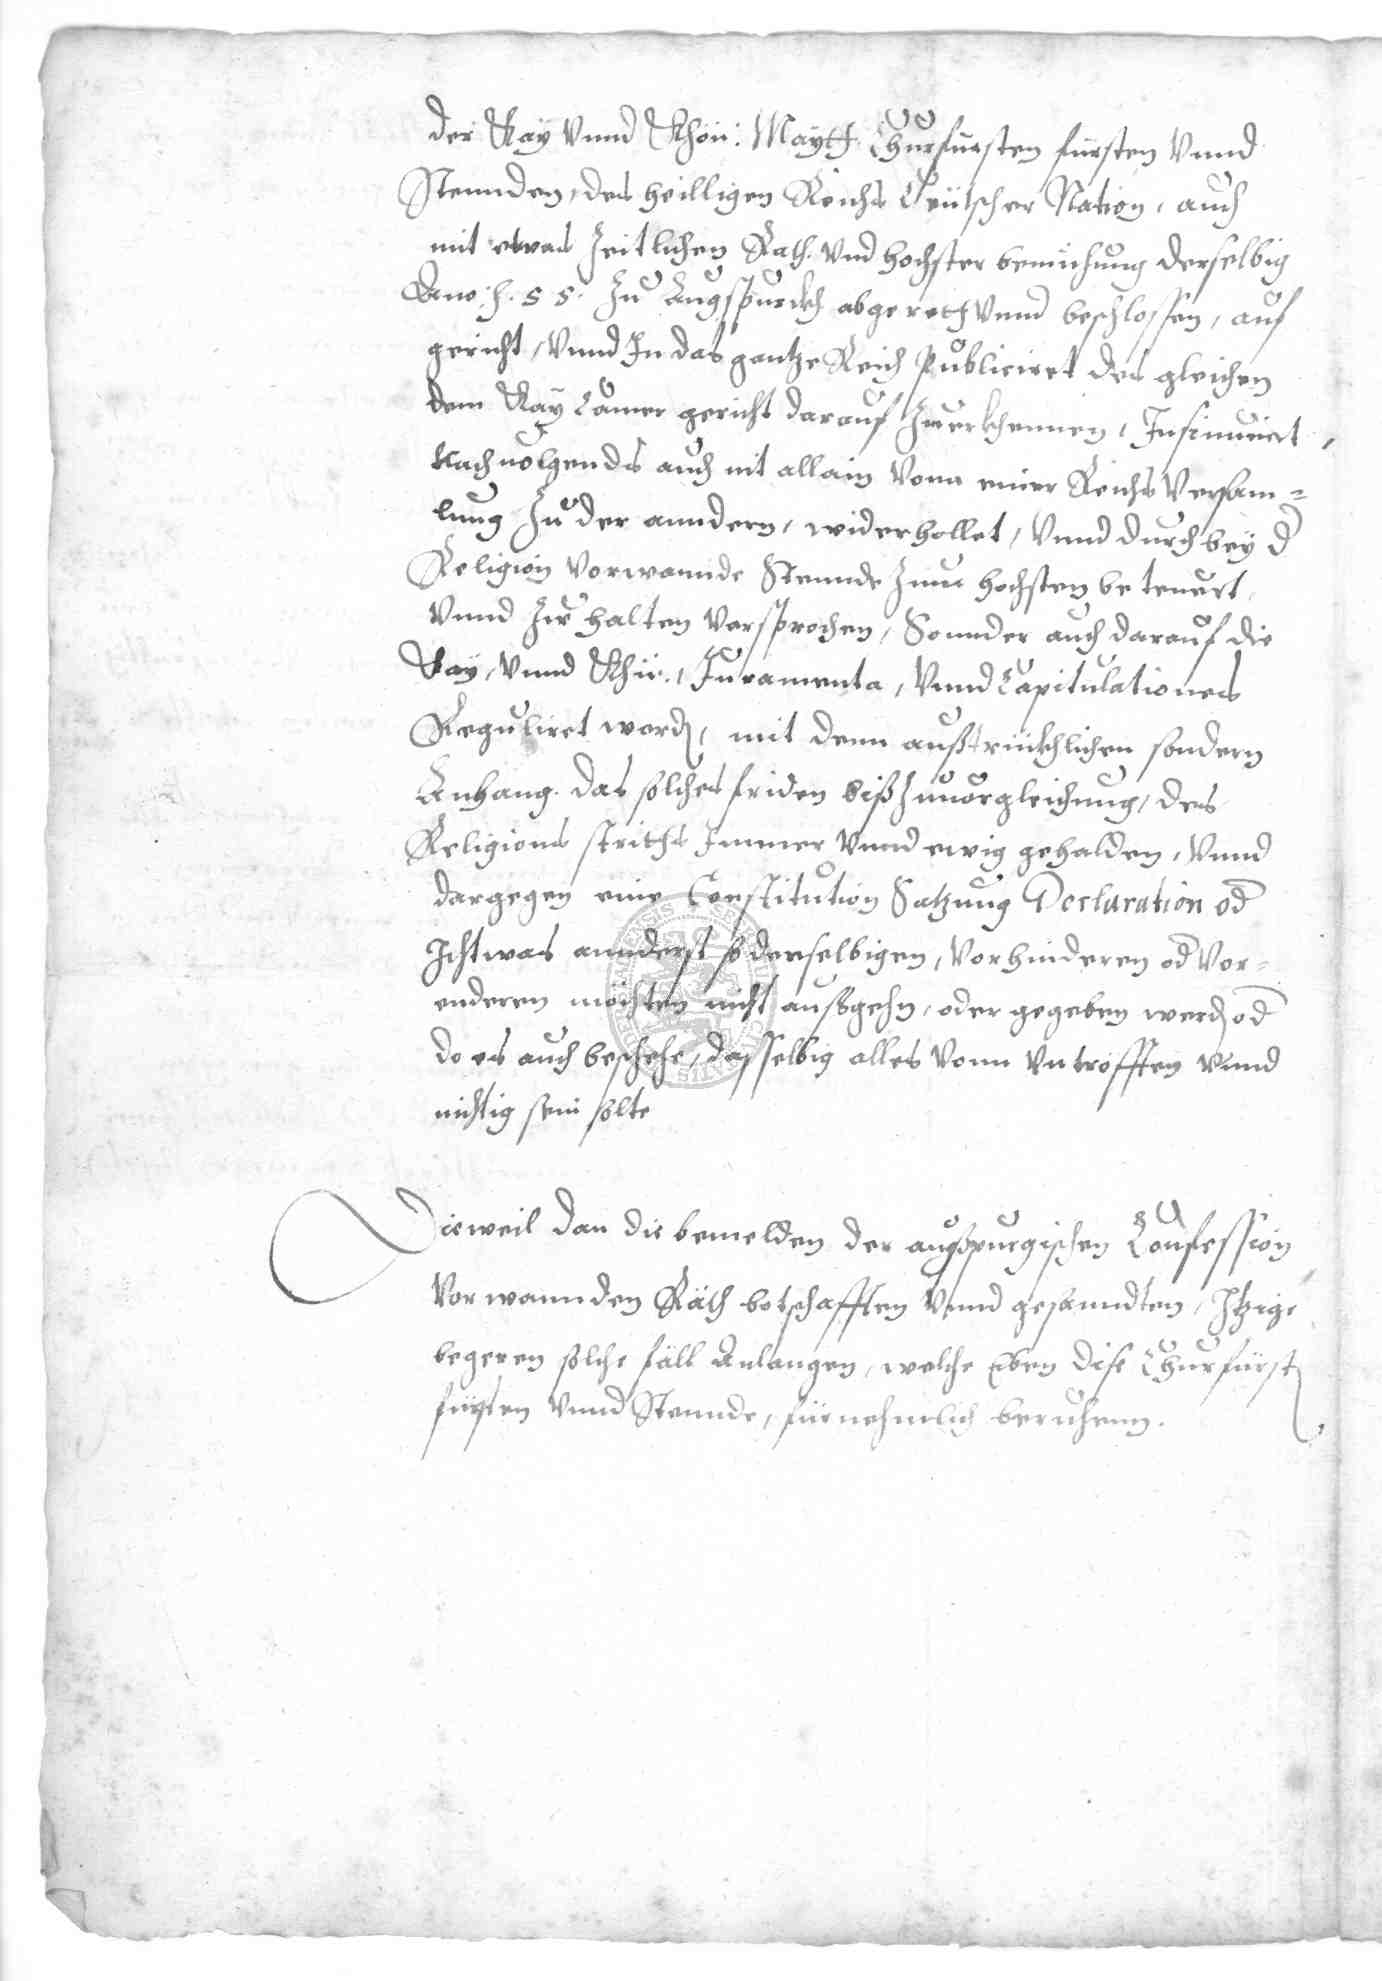 der Kay vnnd Khön: Maytt Churfursten fursten vnnd
Stennden, des heilligen Reichs Teütscher Nation, auch
mit etwas Zeitlichen Rath. vnd hochster bemühung derselbig
Ano: h. 55. Zu Augspurckh abgereth vnnd beschlossen, auf
gericht, vnnd In das gantze Reich Publiciret des gleichen
dem Kay Camer gericht darauf Zuerkhennen, Insinuirt,
Nachuolgends auch nit allain vonn einer Reichs Versam=
lung Zu der anndern, widerhollet, vnnd durch bey d
Religion vorwannde Stennde Zum hochsten beteurt,
vnnd Zu halten versprochen, Sonnder auch darauf die
Kay, vnnd Khü:, Juramenta, vnnd Capitulationes
Reguliret word, mit dem außtrückhlichen sondern
Anhang. das solches friden biß Zuuorgleichung, des
Religions striths Immer vnnd ewig gehalden, vnnd
dargegen eine Constitution Satzung Declaration od
Ichtwas annderst so denselbigen, vorhinderen od vor=
enderen möchten nicht außgehn, oder gegeben werd od
do es auch beschehe, dasselbig alles vonn vntröfften vnnd
nichtig sein solte
Dieweil dan die bemelden der augspurgischen Confession
vorwannden Räth botschafften vnnd gesanndten, Itzige
begeren solche fäll Anlangen, welche Eben dise Churfürst
fürsten vnnd Stennde, fürnehmlich beruhenn.